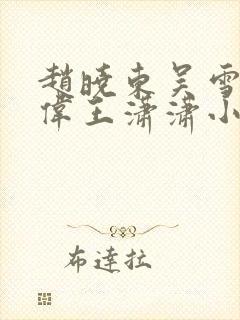 趙曉東吳雪
偉王瀟瀟小
布達拉